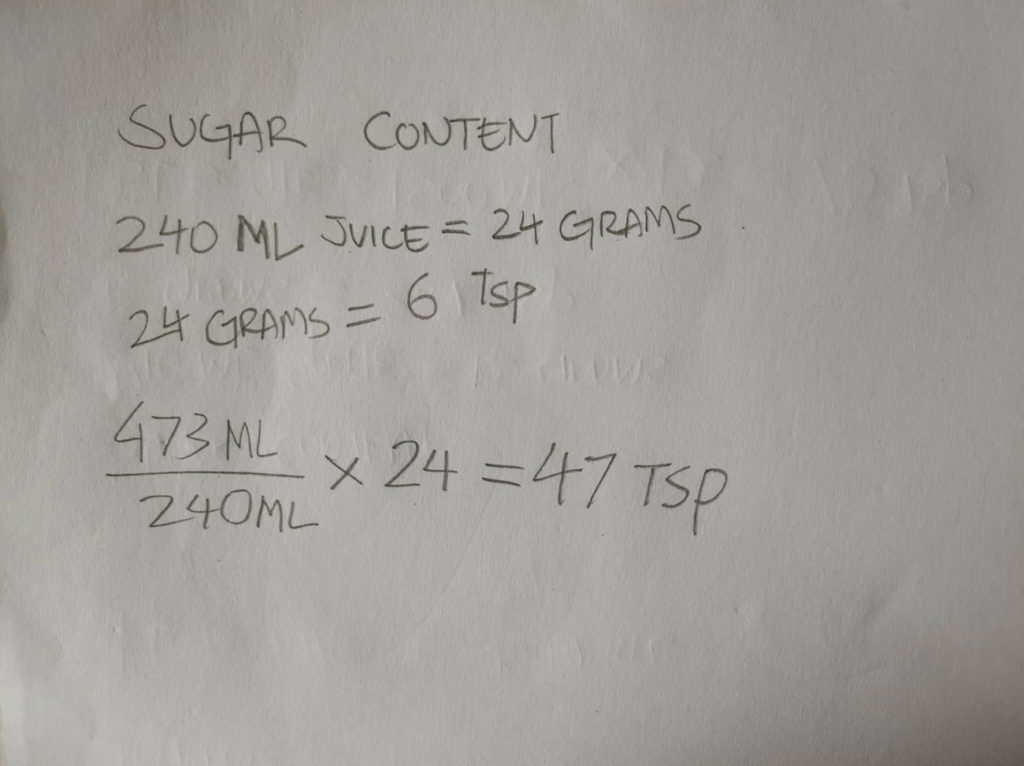 SUGAR CONTENT
240 ML JUICE = 24 GRAMS
24 GRAMS = 6 Tsp
473 ML
240ML × 24 = 47 TSP